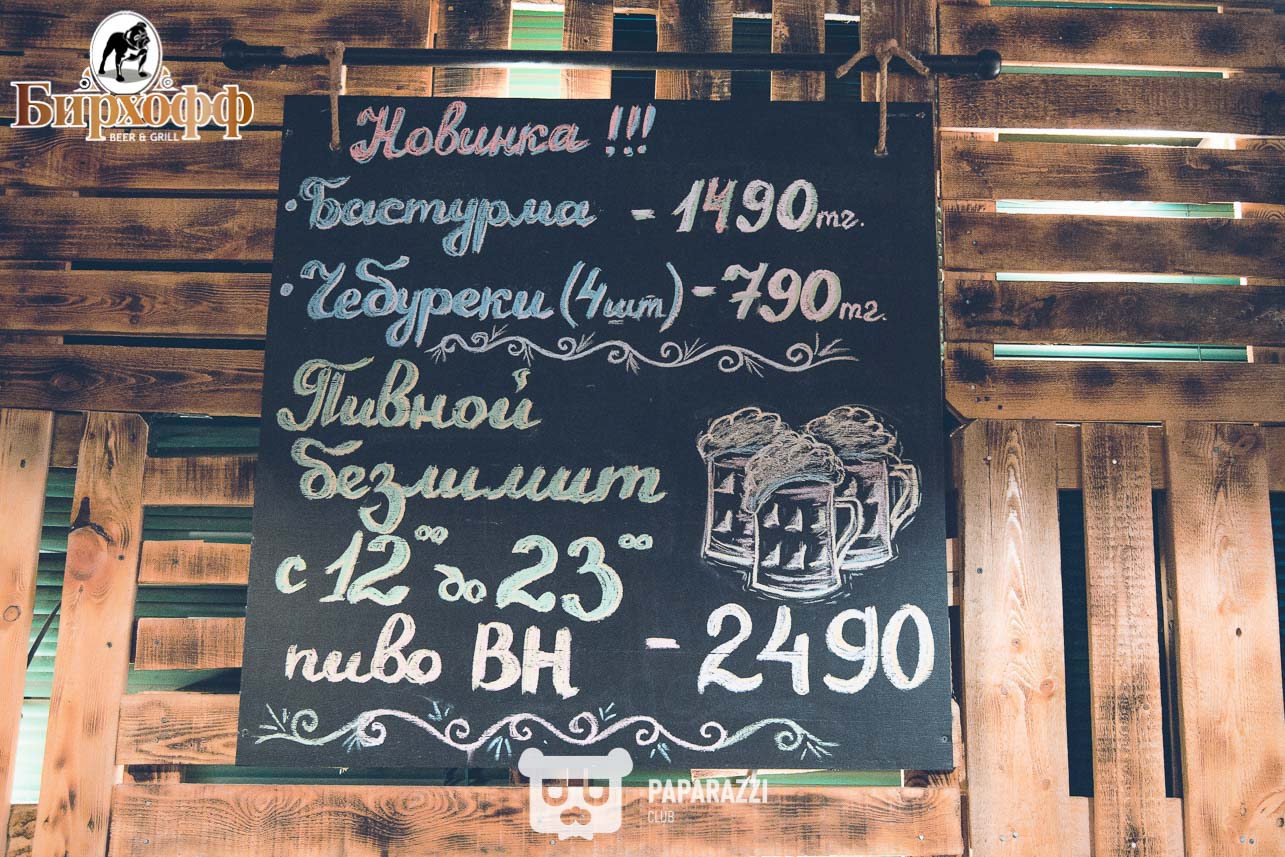 Бирхофф
BEER & GRILL
Новинка !!!
• Бастурма - 1490 тг.
• Чебуреки (4 шт) - 790 тг.
Пивной
безлимит
с 12⁰⁰ до 23⁰⁰
пиво ВН - 2490
PAPARAZZI
CLUB